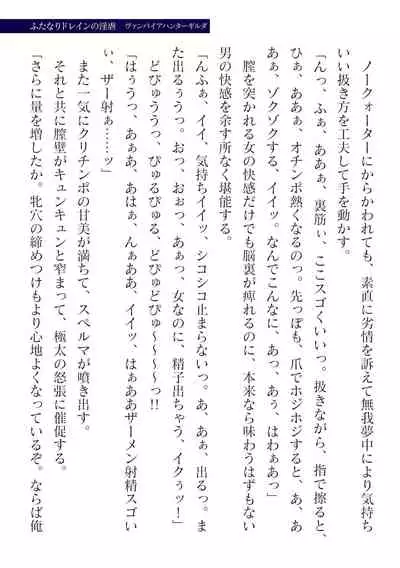 ふたなりドレインの淫虐 ヴァンパイアハンターギルダ
ノークォーターにからかわれても、素直に劣情を訴えて無我夢中により気持ち
いい扱き方を工夫して手を動かす。
「んっ、ふぁ、ああぁ、裏筋ぃ、ここスゴくいいっ。扱きながら、指で擦ると、
ひぁ、ああぁ、オチンポ熱くなるのっ。先っぽも、爪でホジホジすると、あ、あ
あぁ、ゾクゾクする、イイッ。なんでこんなに、あっ、あぅ、はわぁあっ」
膣を突かれる女の快感だけでも脳裏が痺れるのに、本来なら味わうはずもない
男の快感を余す所なく堪能する。
「んふぁ、イイ、気持ちイイッ、シコシコ止まらないっ。あ、あぁ、出るっ。ま
た出るぅうっ。おっ、おぉっ、あぁっ、女なのに、精子出ちゃう、イクぅッ！」
どぴゅうっっ、ぴゅるぴゅる、どぴゅどぴゅ〜〜〜〜っ!!
「はぅうっ、あぁあ、あはぁ、んぁああ、イイッ、はぁああザーメン射精スゴい
い、ザー射ぁ……ッ」
また一気にクリチンポの甘美が満ちて、スペルマが噴き出す。
それと共に膣壁がキュンキュンと窄まって、極太の怒張に催促する。
「さらに量を増したか。牝穴の締めつけもより心地よくなっているぞ。ならば俺